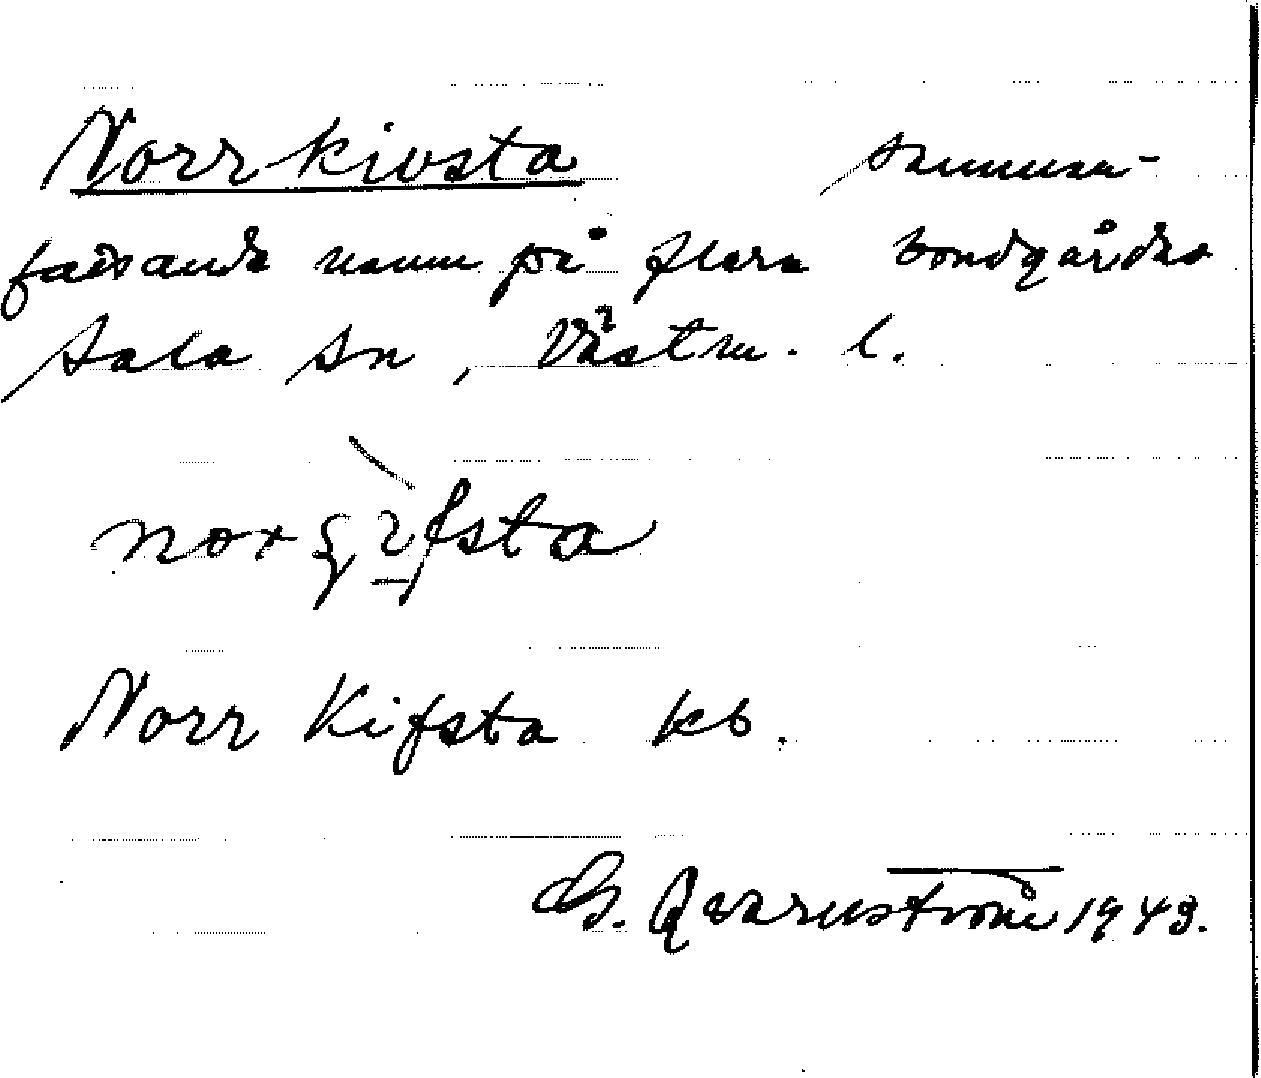 Norrkivsta samman-
fattande namn på flera bondgårdar
Sala sn, Västm. l.
Norr Kifsta kb.
G. Qvarnström 1943.